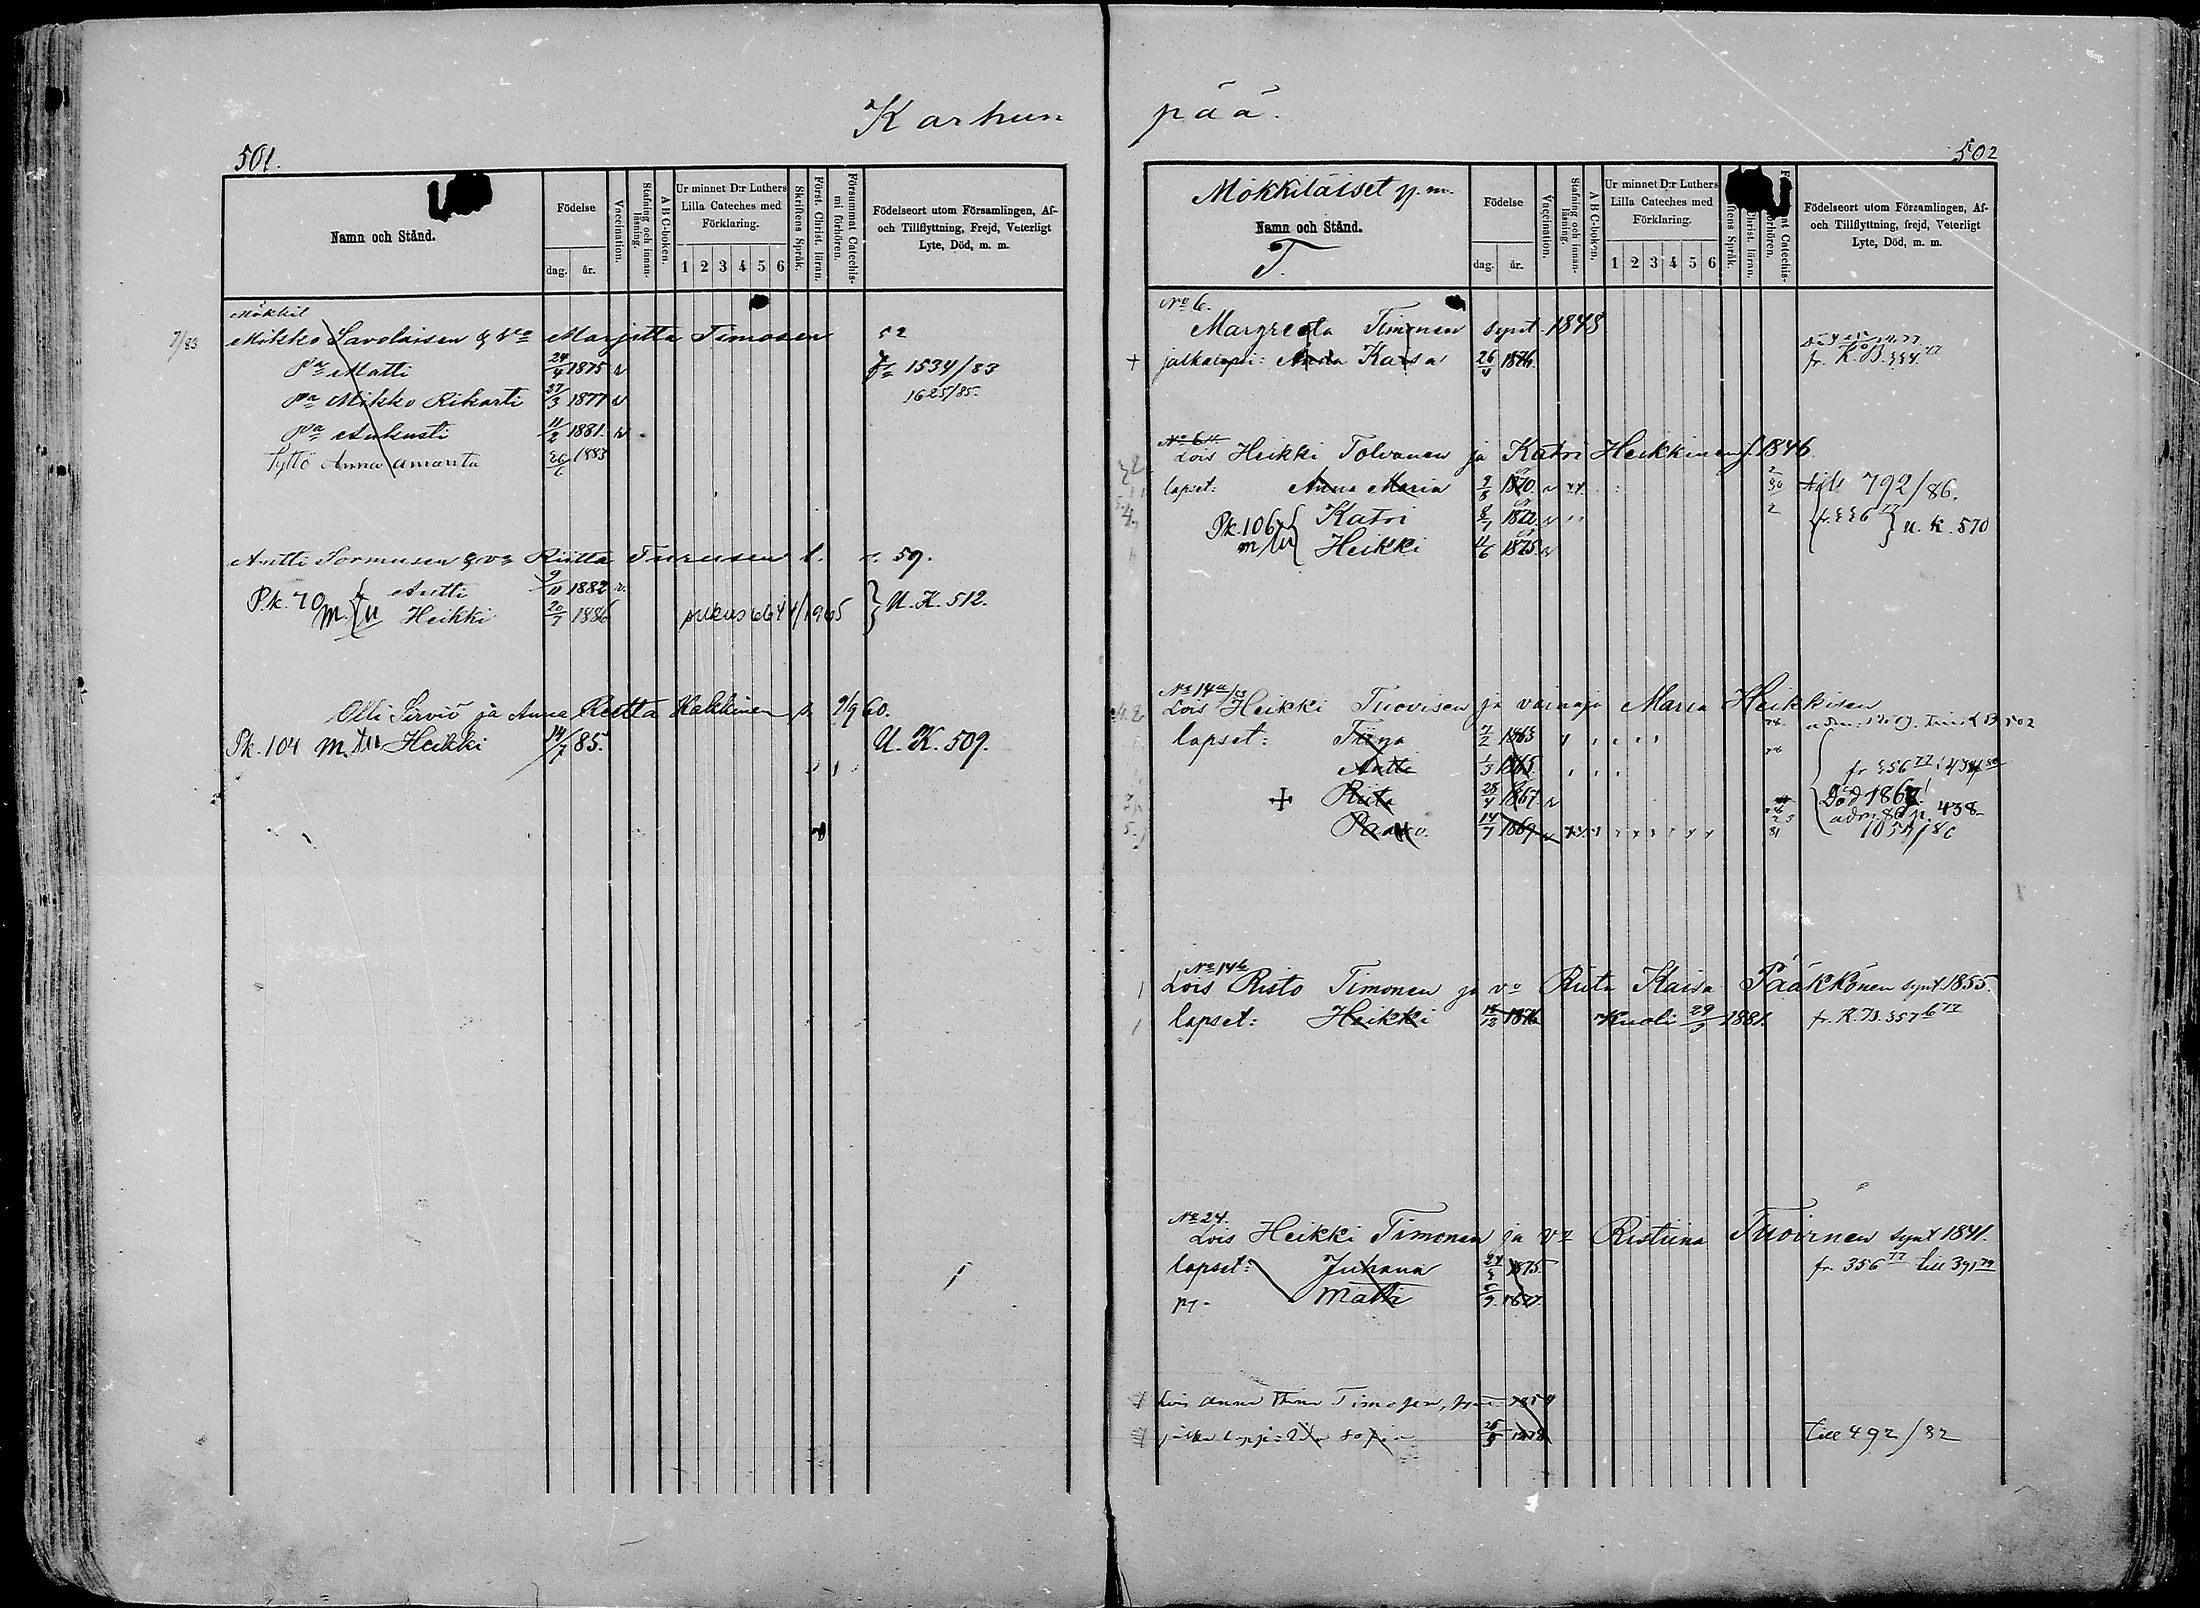 Karhun
pää.
501.
502
Namn och Stånd.
Födelse
dag. år.
Vaccination.
Stafning och innan-läsning.
ABC-boken.
Ur minnet D:r Luthers Lilla Cateches med Förklaring.
1 2 3 4 5 6
Skriftens Språk.
Först. Christ. läran.
Försummat Catechis-mi förhören.
Födelseort utom Församlingen, Af-
och Tillflyttning, Frejd, Veterligt
Lyte, Död, m. m.
7/83 Mökkil
Mikko Savolaisen & Vco Marjitta Timosen 52
Pa Matti 24/4 1875 v fr 1534/83
Pa Mikko Rikarti 27/3 1877 v 1625/85.
Pa Aukusti 11/2 1881. v
Tyttö Anna Amanta 26/6 1883
Antti Sormusen & vo Riitta Turusen l. s. 59.
Pk. 70 m. tu Antti 9/11 1882 v.
Heikki 20/7 1886 U.K. 512.
Olli Serviö ja Anna Reetta Kakkinen s. 9/9 60.
Pk. 104 m. tu Heikki 14/7 85. U.K. 509.
Mökkiläiset y. m.
Namn och Stånd.
T.
Födelse
dag. år.
Vaccination.
Stafning och innan-läsning.
ABC-boken.
Ur minnet D:r Luthers Lilla Cateches med Förklaring.
1 2 3 4 5 6
Födelseort utom Församlingen, Af-
och Tillflyttning, frejd, Veterligt
Lyte, Död, m. m.
No 6.
Margreeta Timonen synt. 1848
+ jalkalapsi: Anna Kaisa 26/4 1876. fr. K.B. 354 77
No 6
Lois Heikki Tolvanen ja Katri Heikkinen s. 1846.
lapset: Anna Maria 9/5 1870. v 792/86.
Pk. 106 m/tu Katri 8/7 1872 v fr. 336 77 U. K. 570
Heikki 11/6 1875 v
No 14 a
Lois Heikki Tuovisen ja vainaja Maria Heikkisen
lapset: Tiina 7/2 1863
Antti 1/3 1865. fr 356 77
+ Riita 28/4 1867 v Död 1867!
Paavo. 14/7 1869 438
No 14 b
Lois Risto Timonen ja vo Riita Kaisa Pääkkönen synt 1855.
lapset: Heikki 14/12 1876 Kuoli 29/3 1881. fr. K.B. 357 77
No 24.
Lois Heikki Timonen ja vo Ristiina Tuovinen synt 1841.
lapset: Juhana 24/3 1875. fr. 356 77 till 391 79
Matti 5/9. 1877.
Lois Anna Timosen, 1854
Sofia 25/3 1878 till 492/82